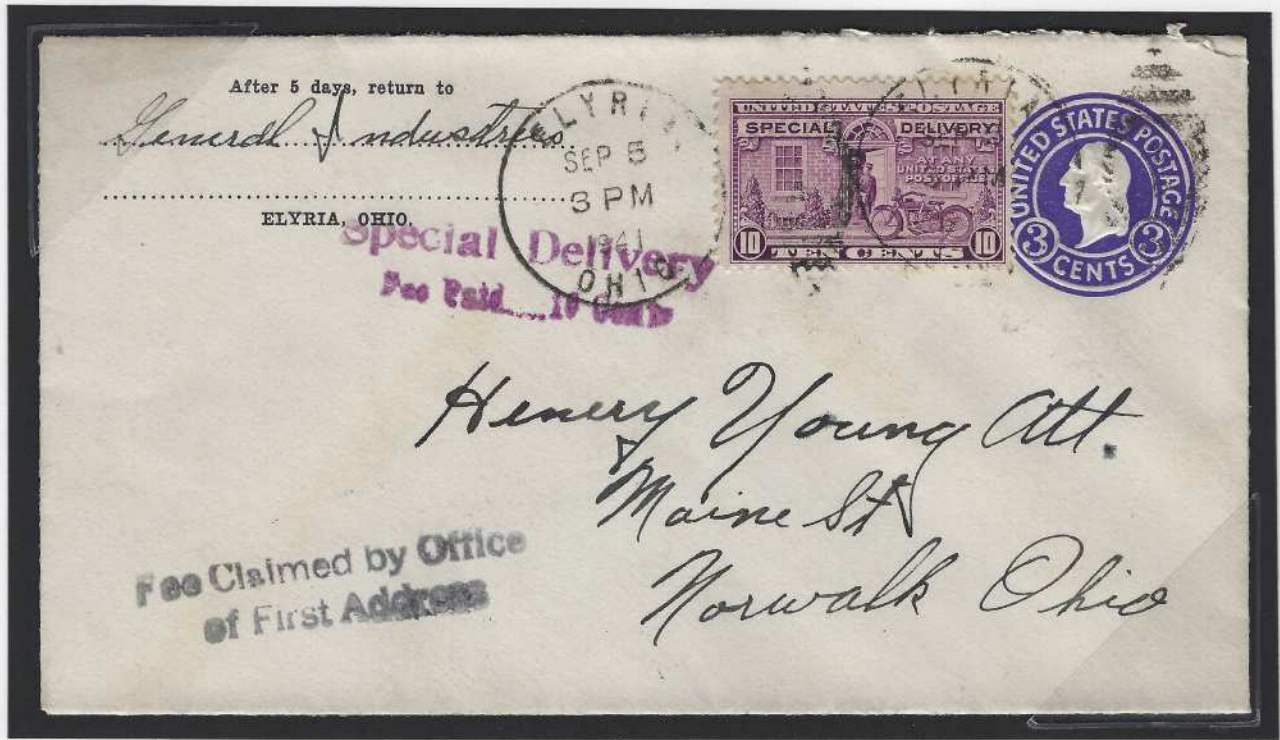 After 5 days, return to
General Industries
ELYRIA, OHIO.
Special Delivery
Fee Paid 10 Cents
ELYRIA
SEP 5
3 PM
1941
OHIO
UNITED STATES POSTAGE
SPECIAL DELIVERY
AT ANY
UNITED STATES
POST OFFICE
10 TEN CENTS 10
ELYRIA
UNITED STATES POSTAGE
3 CENTS 3
Henery Young Att.
Maine St
Norwalk Ohio
Fee Claimed by Office
of First Address